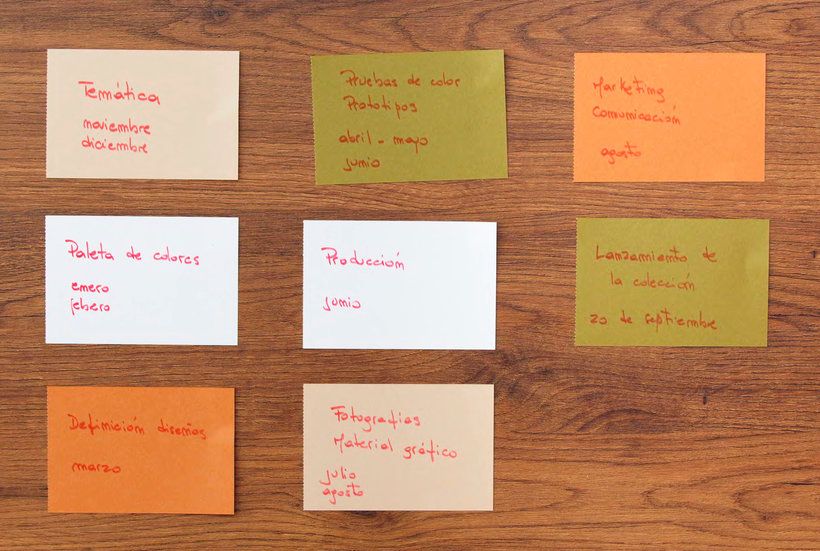 Temática
noviembre
diciembre
Paleta de colores
enero
febero
Definición diseños
marzo
Pruebas de color
Prototipos
abril - mayo
junio
Producción
junio
Fotografias
Material gráfico
julio
agosto
Marketing
comunicación
agosto
Lanzamiento de
la colección
20 de septiembre